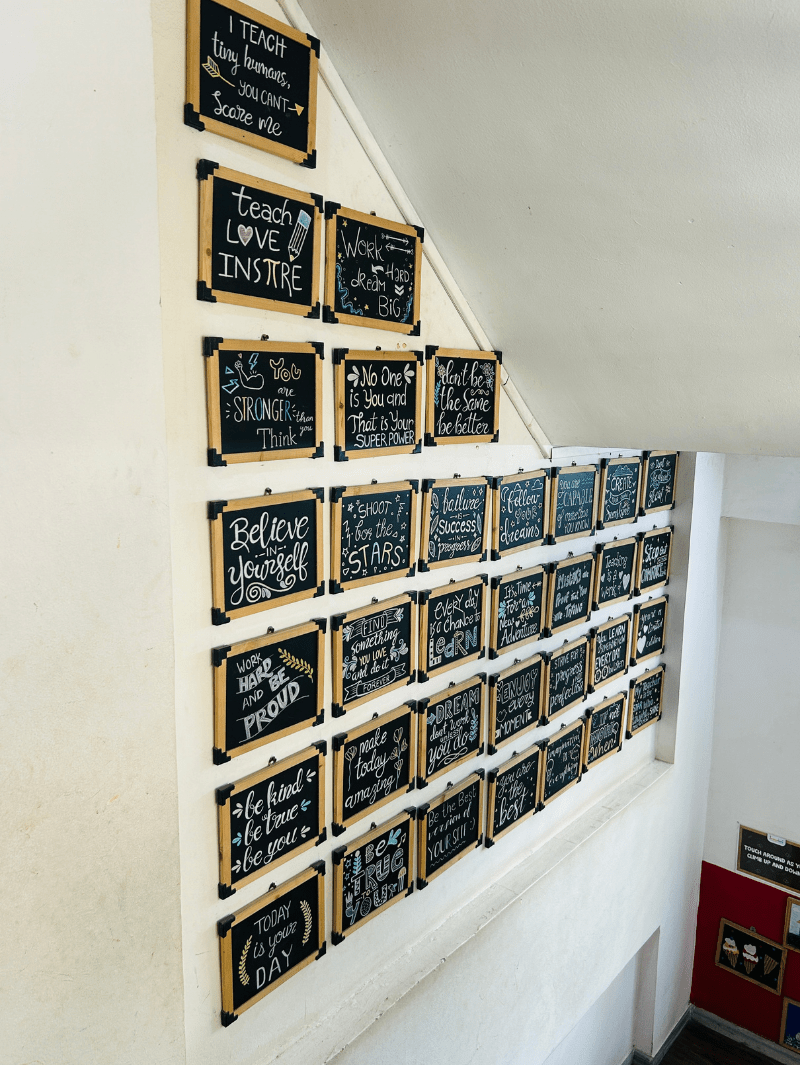 I TEACH
tiny humans,
YOU CAN'T
Scare me
teach
LOVE
INSπRE
WORK
HARD
dream
BIG
YOU
are
STRONGER than
you
Think
No One
is You and
That is Your
SUPER POWER
don't be
the same
be better
Believe
IN
yourself
SHOOT
for the
STARS
failure
IS
SUCCESS
IN
progress
follow
dreams
YOU ARE
CAPABLE
CREATE
WORK
HARD
AND BE
PROUD
FIND
something
YOU LOVE
and do it
FOREVER
EVERY day
is a chance
to
LeaRN
It's Time
For a
New
Adventure
Mistakes
are
Proof that You
are TRYING
Teaching
is a
work of
Step
be kind
be true
be you
make
today
amazing
DREAM
don't work
unless
you do
ENJOY
every
MOMENT
STRIVE FOR
progress
perfection
LEARN
SOMETHING
EVERYDAY
TODAY
is your
DAY
Be
TRUE
to
Yourself
Be the Best
version of
YOURSELF
you are
the
best
when
TOUCH AROUND AS Y
CLIMB UP AND DOW